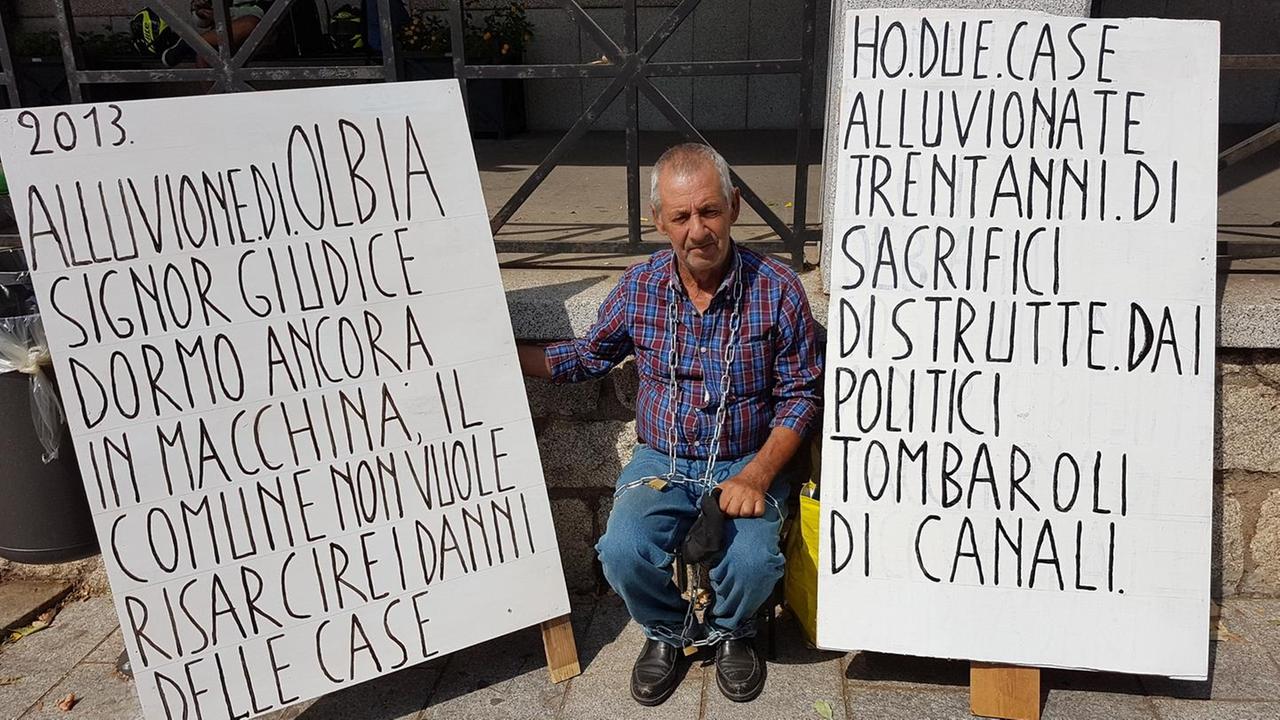 2013.
ALLUVIONE.DI.OLBIA
SIGNOR GIUDICE
DORMO ANCORA
IN MACCHINA, IL
COMUNE NON VUOLE
RISARCIRE I DANNI
DELLE CASE
HO.DUE.CASE
ALLUVIONATE
TRENTANNI.DI
SACRIFICI
DISTRUTTE.DAI
POLITICI
TOMBAROLI
DI CANALI.